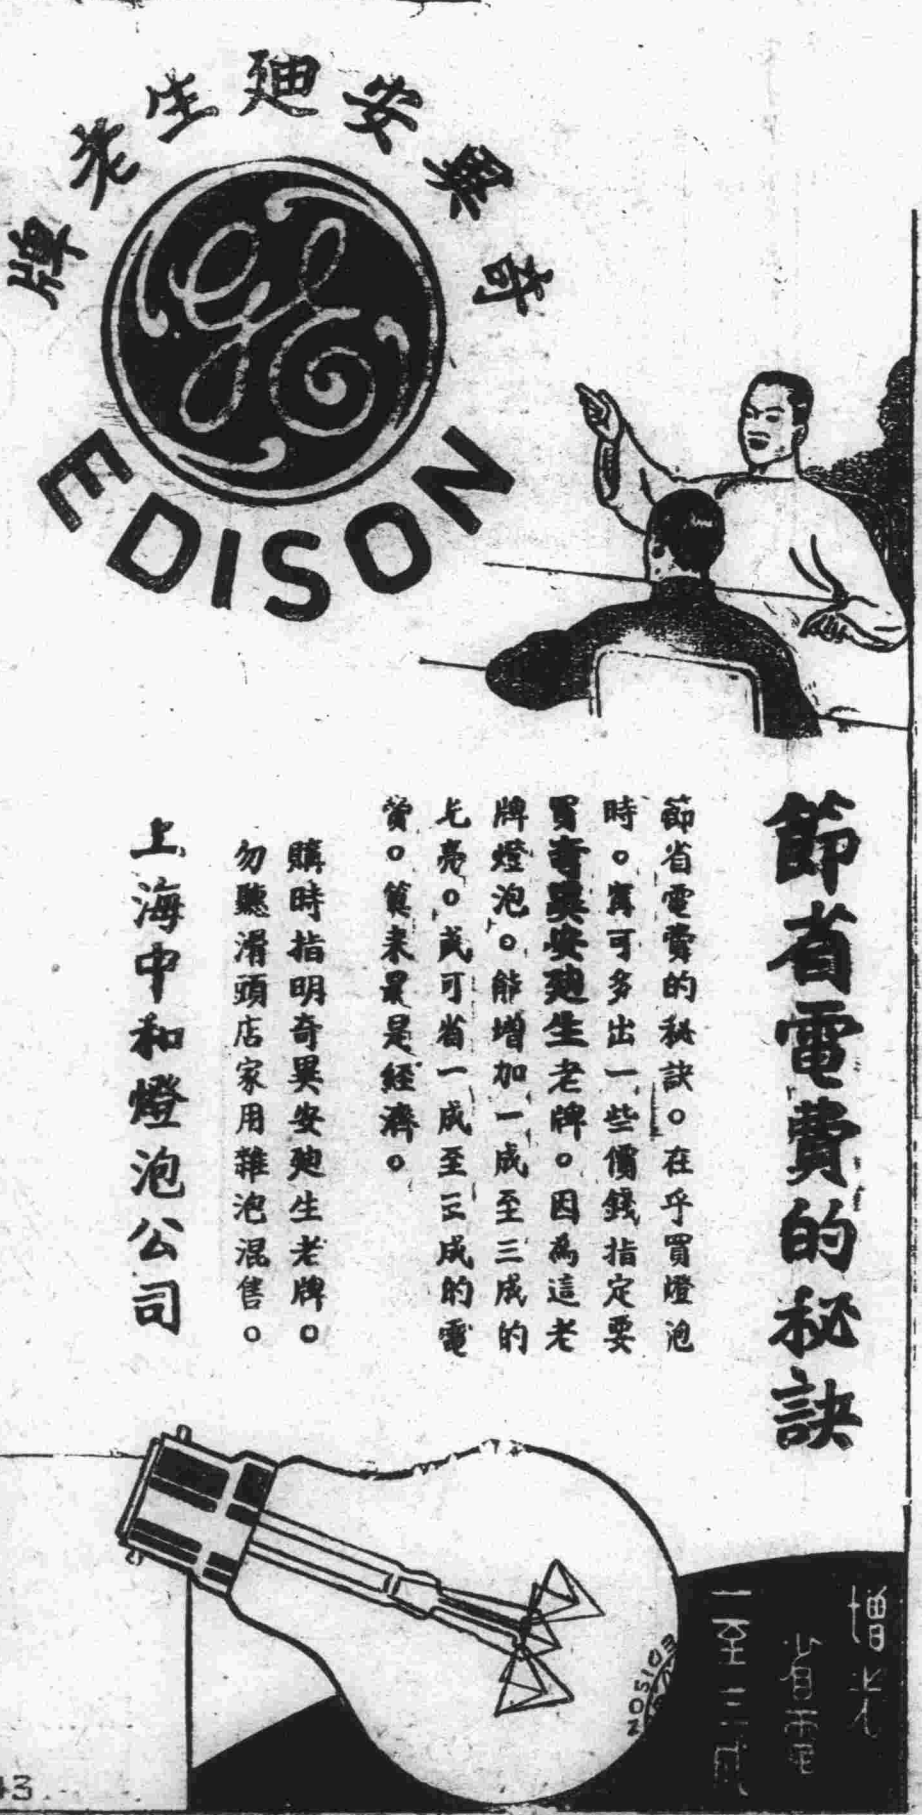 奇異安廸生老牌
GE
EDISON
節省電費的秘訣
節省電費的秘訣。在乎買燈泡
時。寧可多出一些價錢指定要
買奇異安廸生老牌。因為這老
牌燈泡。能增加一成至三成的
光亮。或可省一成至三成的電
費。算來最是經濟。
購時指明奇異安廸生老牌。
勿聽滑頭店家用雜泡混售。
上海中和燈泡公司
增光
省電
一至三成
EDISON
43